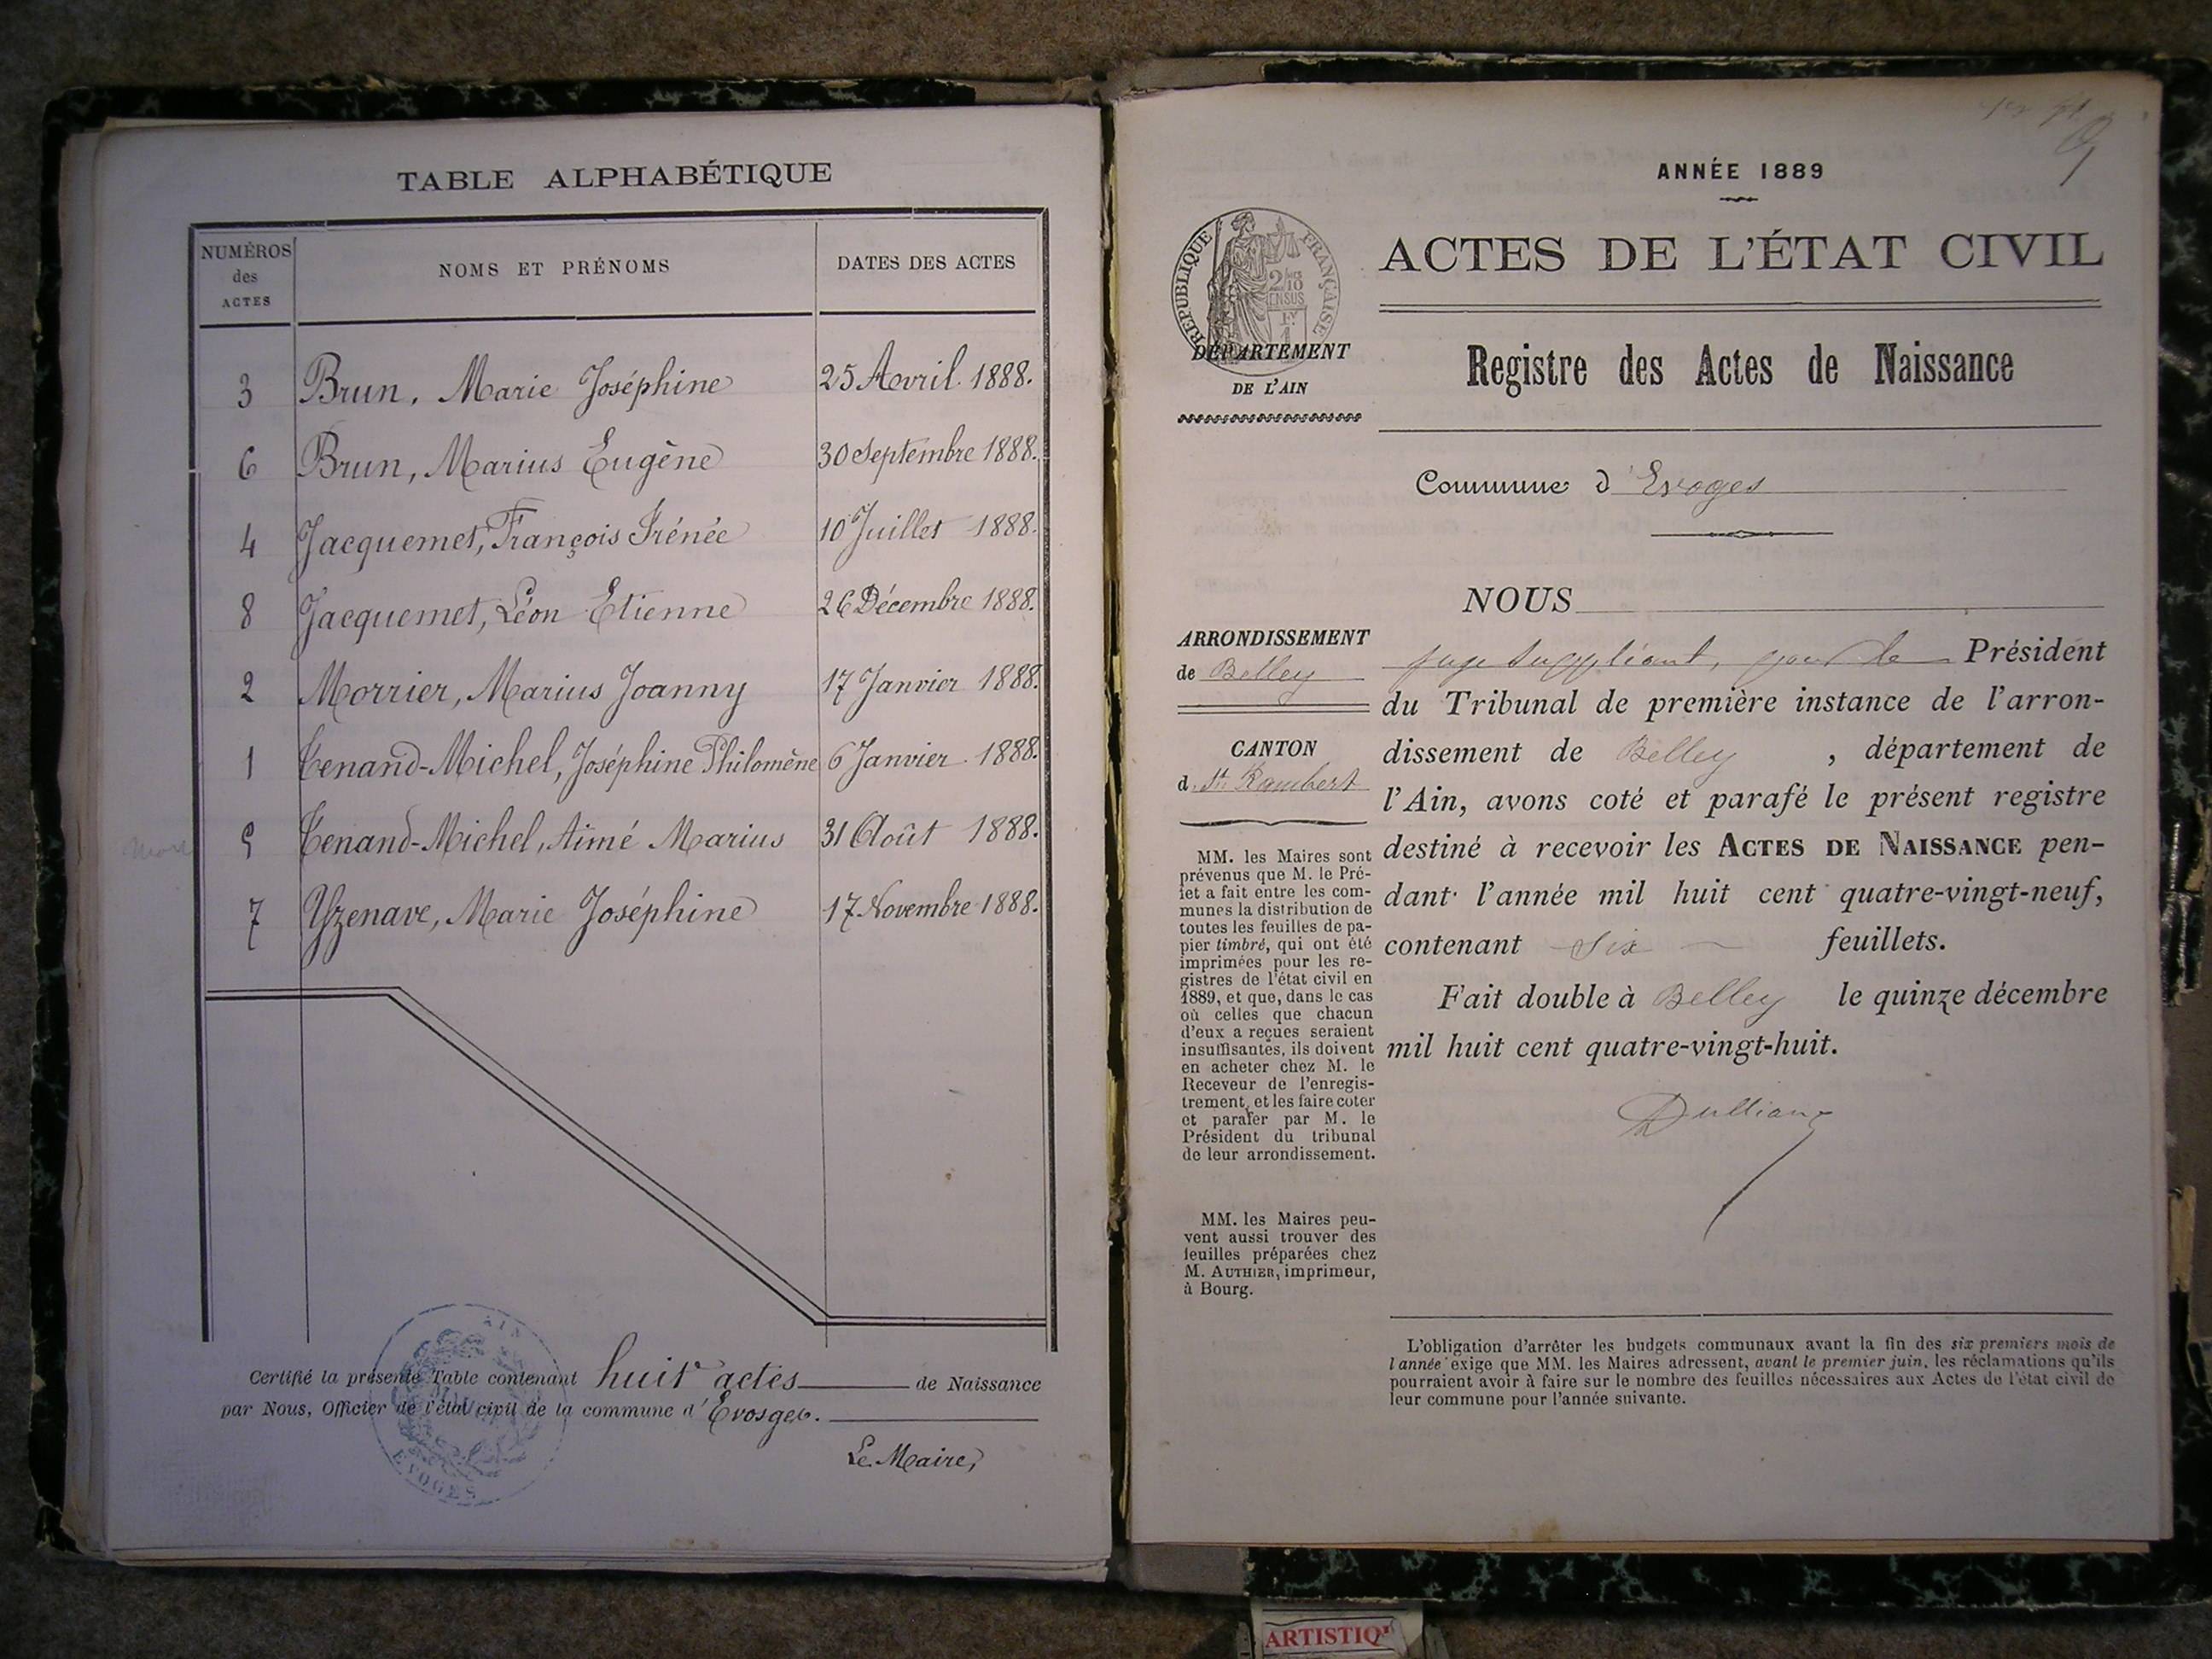 TABLE ALPHABÉTIQUE
NUMÉROS des ACTES
NOMS ET PRÉNOMS
DATES DES ACTES
3 Brun, Marie Joséphine 25 Avril 1888.
6 Brun, Marius Eugène 30 Septembre 1888.
4 Jacquemet, François Irénée 10 Juillet 1888.
8 Jacquemet, Léon Etienne 26 Décembre 1888.
2 Morrier, Marius Joanny 17 Janvier 1888.
1 Tenand-Michel, Joséphine Philomène 6 Janvier 1888.
5 Tenand-Michel, Aimé Marius 31 Août 1888.
7 Yzenave, Marie Joséphine 17 Novembre 1888.
Certifié la présente Table contenant huit actes de Naissance
par Nous, Officier de l'état civil de la commune d'Evosges.
Le Maire,
AIN
EVOGES
ANNÉE 1889
RÉPUBLIQUE FRANÇAISE
ACTES DE L'ÉTAT CIVIL
DÉPARTEMENT
DE L'AIN
Registre des Actes de Naissance
Commune d'Evoges
ARRONDISSEMENT
de Belley
CANTON
d. St. Rambert
MM. les Maires sont
prévenus que M. le Pré-
fet a fait entre les com-
munes la distribution de
toutes les feuilles de pa-
pier timbré, qui ont été
imprimées pour les re-
gistres de l'état civil en
1889, et que, dans le cas
où celles que chacun
d'eux a reçues seraient
insuffisantes, ils doivent
en acheter chez M. le
Receveur de l'enregis-
trement, et les faire coter
et parafer par M. le
Président du tribunal
de leur arrondissement.
MM. les Maires peu-
vent aussi trouver des
feuilles préparées chez
M. AUTHIER, imprimeur,
à Bourg.
NOUS
juge suppléant, pour le Président
du Tribunal de première instance de l'arron-
dissement de Belley , département de
l'Ain, avons coté et parafé le présent registre
destiné à recevoir les ACTES DE NAISSANCE pen-
dant l'année mil huit cent quatre-vingt-neuf,
contenant six feuillets.
Fait double à Belley le quinze décembre
mil huit cent quatre-vingt-huit.
L'obligation d'arrêter les budgets communaux avant la fin des six premiers mois de
l'année exige que MM. les Maires adressent, avant le premier juin, les réclamations qu'ils
pourraient avoir à faire sur le nombre des feuilles nécessaires aux Actes de l'état civil de
leur commune pour l'année suivante.
ARTISTIQ